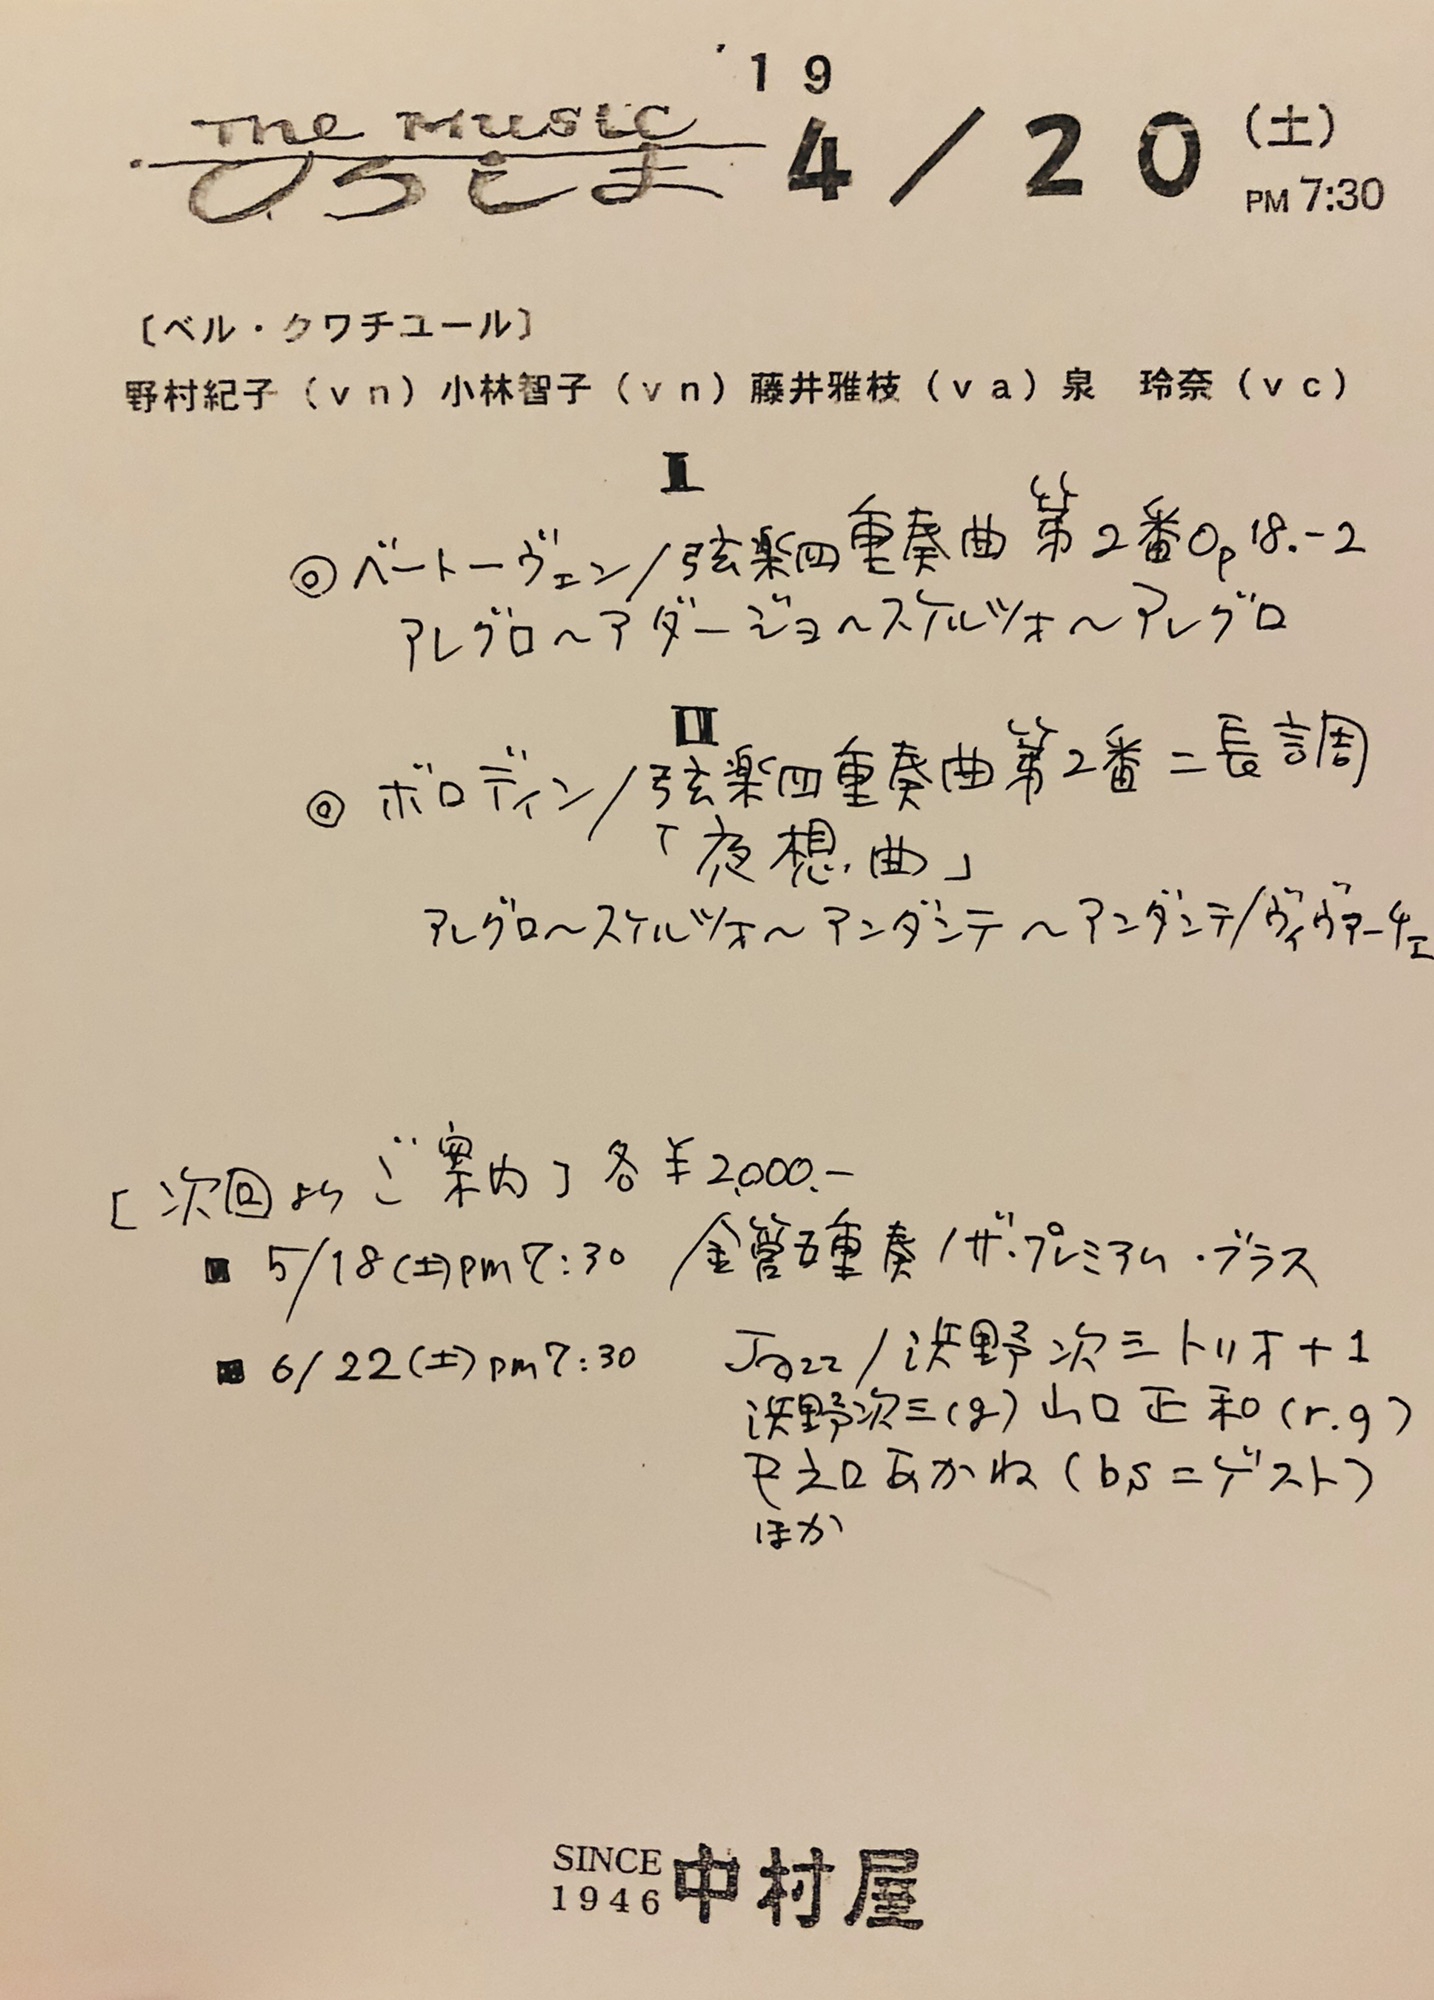 '19
The Music
4/20(土)
PM 7:30
〔ベル・クワチユール〕
野村紀子(vn)小林智子(vn)藤井雅枝(va)泉 玲奈(vc)
I
◎ベートーヴェン/弦楽四重奏曲第2番Op18.-2
アレグロ〜アダージョ〜スケルツォ〜アレグロ
II
◎ボロディン/弦楽四重奏曲第2番ニ長調
「夜想曲」
アレグロ〜スケルツォ〜アンダンテ〜アンダンテ/ヴィヴァーチェ
[次回よりご案内]各¥2,000.-
■ 5/18(土)pm7:30 金管五重奏/ザ・プレミアム・ブラス
■ 6/22(土)pm7:30 Jazz/浜野次三トリオ+1
浜野次三(g)山口正和(r.g)
あかね(bs=ゲスト)
ほか
SINCE
1946
中村屋